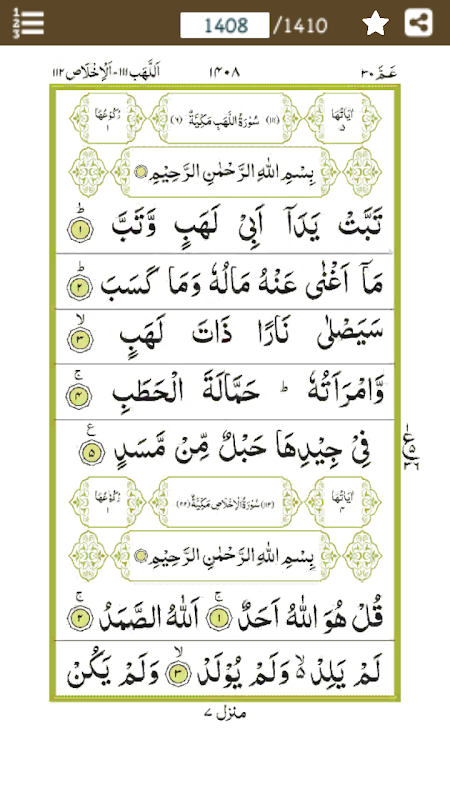 1
2
3
1408 /1410
عَمَّ ٣٠
١٤٠٨
اَللَّهَب ١١١-اَلْاِخْلَاص ١١٢
اٰيَاتُهَا ٥
(١١١) سُوْرَةُ اللَّهَبِ مَكِّيَّةٌ (٦)
رُكُوْعُهَا ١
بِسْمِ اللهِ الرَّحْمٰنِ الرَّحِيْمِ
تَبَّتْ يَدَآ اَبِىْ لَهَبٍ وَّتَبَّ ؕ ١
مَاۤ اَغْنٰى عَنْهُ مَالُهٗ وَمَا كَسَبَ ؕ ٢
سَيَصْلٰى نَارًا ذَاتَ لَهَبٍ ۙ ٣
وَّامْرَاَتُهٗ ؕ حَمَّالَةَ الْحَطَبِ ۚ ٤
فِىْ جِيْدِهَا حَبْلٌ مِّنْ مَّسَدٍ ع ٥
١
ع ٥
٣٦
اٰيَاتُهَا ٤
(١١٢) سُوْرَةُ الْاِخْلَاصِ مَكِّيَّةٌ (٢٢)
رُكُوْعُهَا ١
بِسْمِ اللهِ الرَّحْمٰنِ الرَّحِيْمِ
قُلْ هُوَ اللهُ اَحَدٌ ۚ ١ اَللهُ الصَّمَدُ ۚ ٢
لَمْ يَلِدْ ۙ وَلَمْ يُوْلَدْ ۙ ٣ وَلَمْ يَكُنْ
منزل ٧